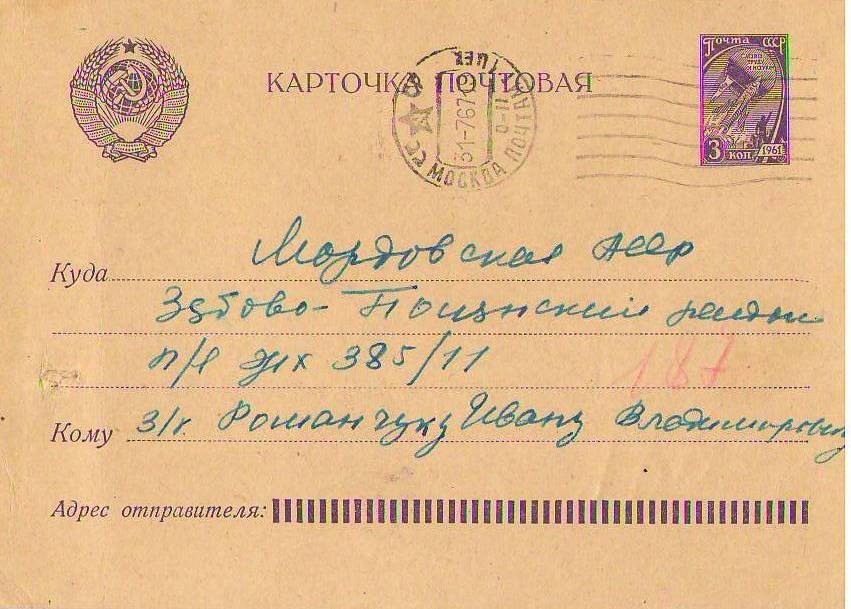 КАРТОЧКА ПОЧТОВАЯ
ПОЧТА СССР
3 КОП
1961
МОСКВА ПОЧТАМТ
31-7 67
Куда Мордовская АССР
Зубово-Полянский район
п/я ЖХ 385/11
187
Кому з/к Романчуку Ивану Владимировичу
Адрес отправителя: